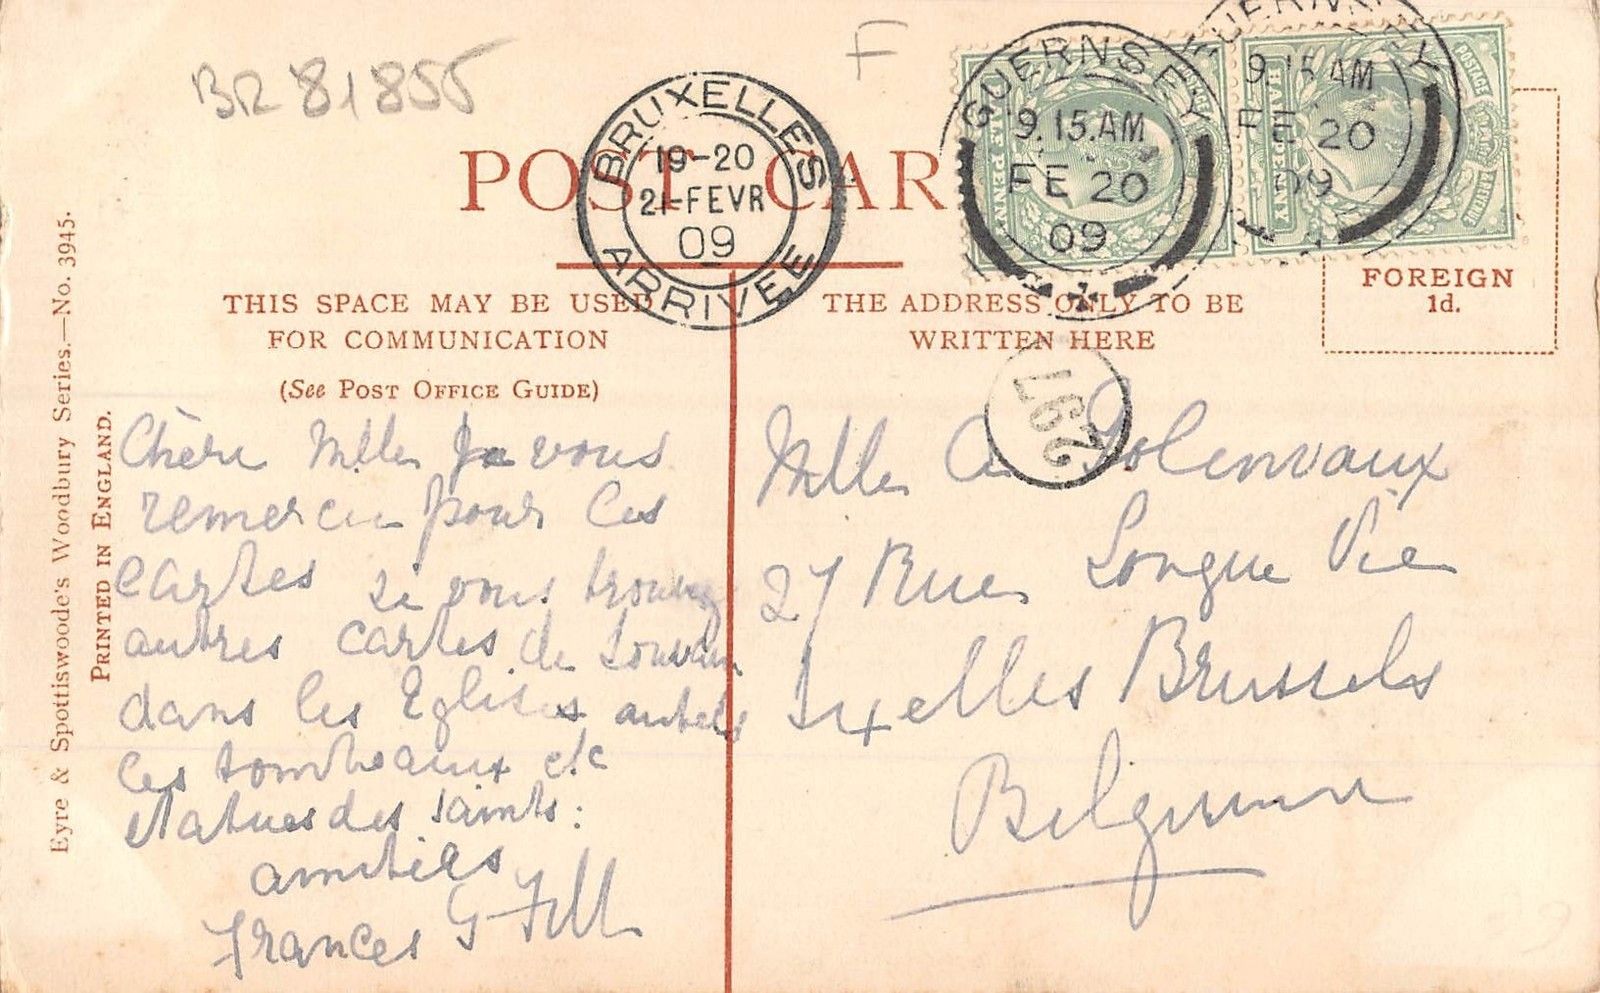 BR 81855
F
BRUXELLES
19-20
21-FEVR
09
ARRIVEE
GUERNSEY
9.15.AM
FE 20
09
GUERNSEY
9.15 AM
FE 20
09
POSTAGE
HALF PENNY
POST CAR
FOREIGN
1d.
THIS SPACE MAY BE USED
FOR COMMUNICATION
(See POST OFFICE GUIDE)
THE ADDRESS ONLY TO BE
WRITTEN HERE
297
Eyre & Spottiswoode's Woodbury Series.—No. 3945.
PRINTED IN ENGLAND.
Chère Mlle Je vous
remercie pour les
cartes si vous trouvez
autres cartes de Louvain
dans les Eglises autels
les tombeaux etc
statues des saints:
amitiés
Frances G
Mlle Golenvaux
27 Rue Longue Vie
Ixelles Brussels
Belgium